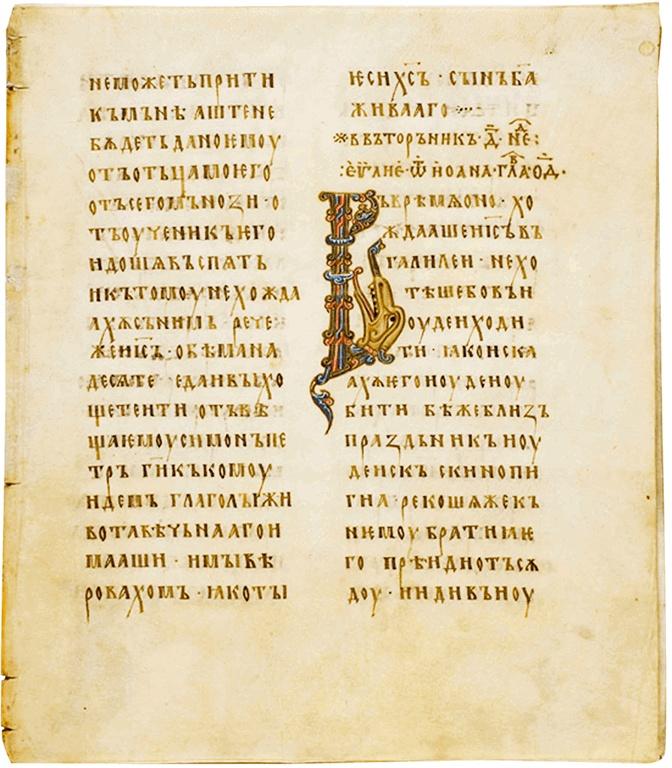 неможетьприти
къмънѣ аштене
бѫдетьданоѥмоу
отъотьцамоѥго
отъсегомъноꙁи · о
тъоученикъѥго
идошѧвъспѧть
икътомоунехожда
ахѫсънимь · рече
жеиі҃съ · обѣмана
десѧте · еданвыхо
штетеити · отъвѣ
штаѥмоусимонъпе
тръ · ги҃къкомоу
идемъ · глаголыжи
вотавѣчьнааго и
мааши · имывѣ
ровахомъ · ꙗкоты
ѥсих҃съ · сынъб҃а
живааго
въвторьник · д҃ · не :
: еѵ҃глиѥ · ѿ иоана · гла · од ·
Въврѣмѧоно · хо
ждаашеиі҃съвъ
галилеи · нехо
тѣшебовъи
оудеиходи
ти · ꙗкоиска
ахѫѥгоиоудеиоу
бити · бѣжеблиꙁъ
праꙁдьникъиоу
деискъ скинопи
гиа · рекошѧжекъ
нѥмоубратиꙗѥ
го · прѣидиотъсѫ
доу · иидивъиоу